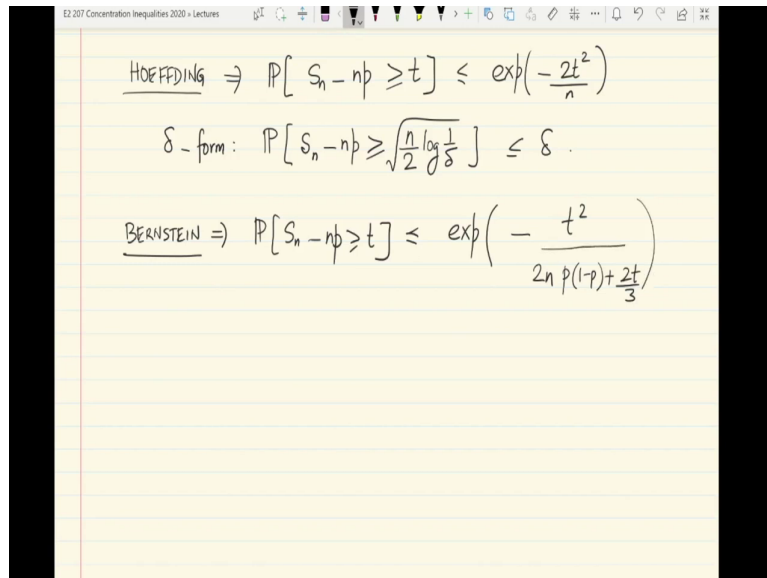 E2 207 Concentration Inequalities 2020 » Lectures
HOEFFDING ⇒ ℙ[ Sₙ − np ≥ t ] ≤ exp(− 2t²/n)
δ-form : ℙ[ Sₙ − np ≥ √(n/2 log 1/δ) ] ≤ δ .
BERNSTEIN ⇒) ℙ[ Sₙ − np ≥ t ] ≤ exp( − t² / (2n p(1−p) + 2t/3) )